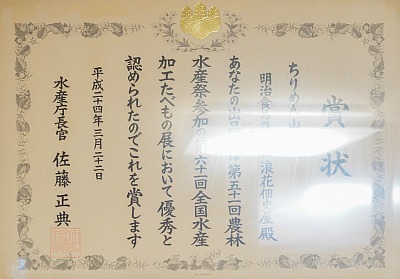 賞状
ちりめん山
明治食品 浪花佃煮 殿
あなたの出品 は第五十一回農林
水産祭参加の 六十一回全国水産
加工たべもの展において優秀と
認められたのでこれを賞します
平成二十四年三月二十二日
水産庁長官 佐藤正典